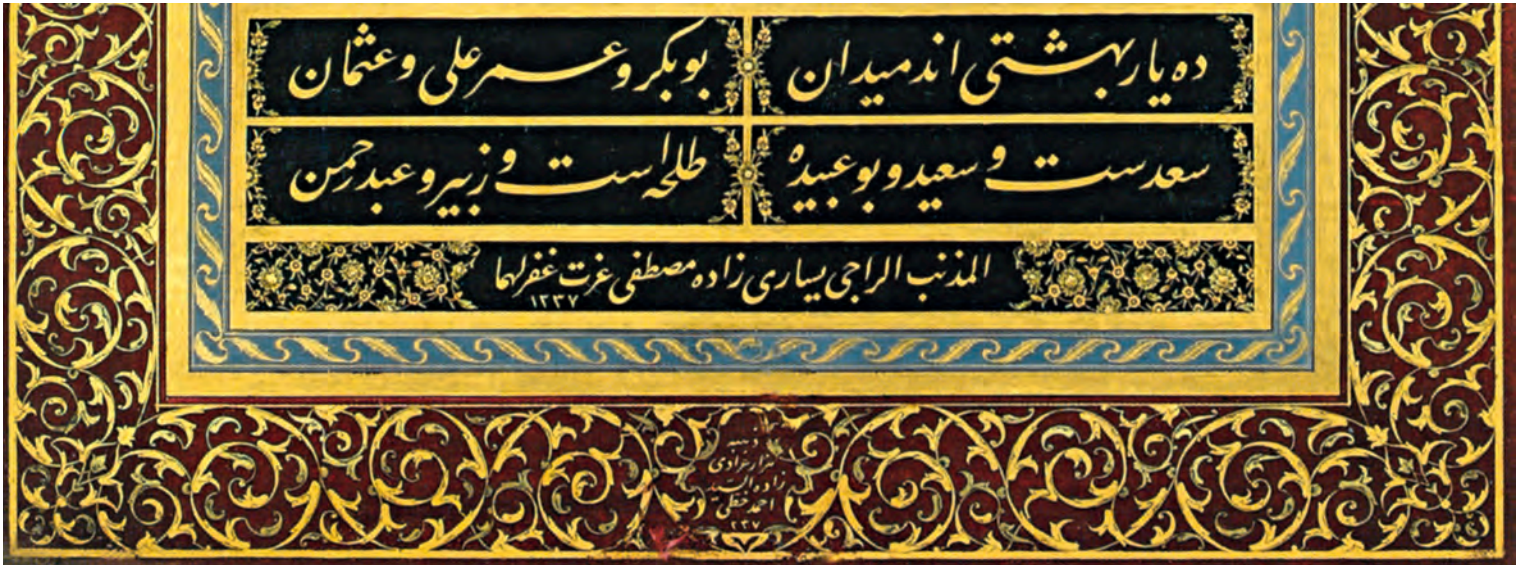 ده یار بهشتی اند میدان بوبکر و عمر علی و عثمان
سعدست و سعید و بوعبیده طلحه است و زبیر و عبدرحمن
المذنب الراجی یساری زاده مصطفی عزت غفرلهما
١٢٣٧
زاده السید
احمد